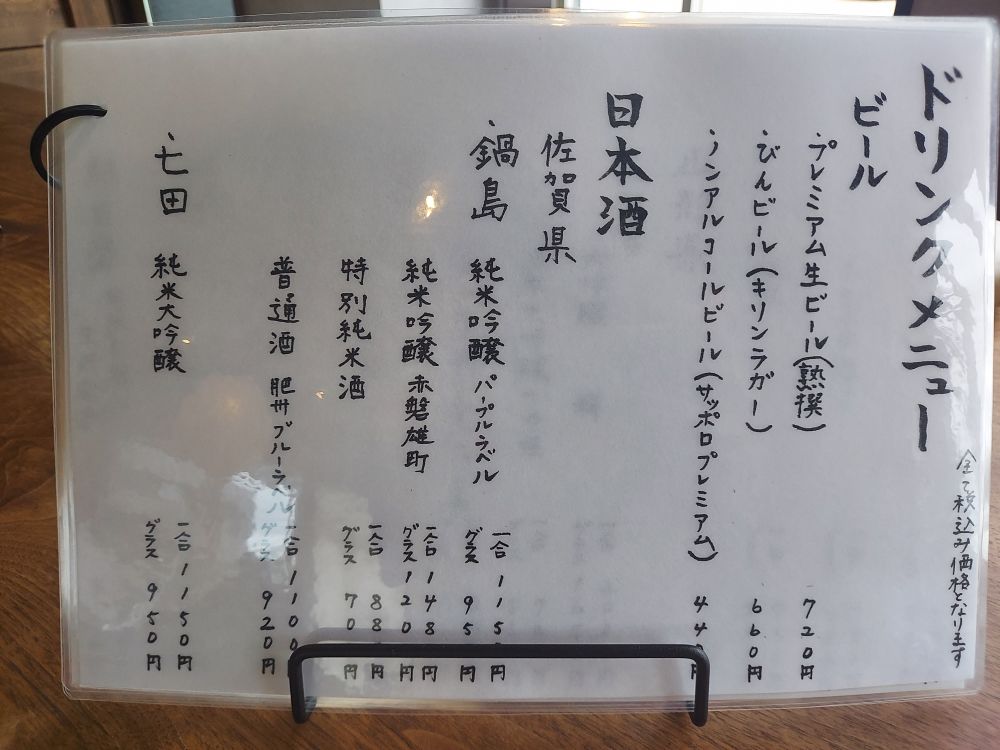 ドリンクメニュー
全て税込み価格となります
ビール
・プレミアム生ビール(熟撰) 720円
・びんビール(キリンラガー) 660円
・ノンアルコールビール(サッポロプレミアム) 44 円
日本酒
佐賀県
・鍋島 純米吟醸 パープルラベル 一合 115 円
グラス 95 円
純米吟醸 赤磐雄町 一合 148 円
グラス 120 円
特別純米酒 一合 88 円
グラス 70 円
普通酒 肥州ブルーラベル 一合 1100円
グラス 920円
・七田 純米大吟醸 一合 1150円
グラス 950円